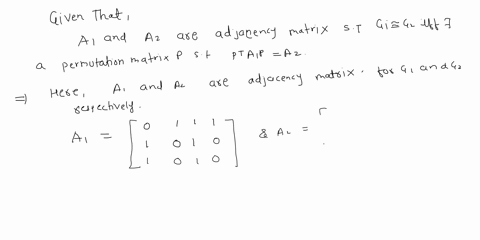 Given That,
A1 and A2 are adjacency matrix s.t G1≅G2 iff ∃
a permutation matrix P s.t PTA1P = A2.
⇒ Here, A1 and A2 are adjacency matrix. for G1 and G2
respectively.
A1 = [ 0 1 1 1 & A2 = [
1 0 1 0
1 0 1 0 ]